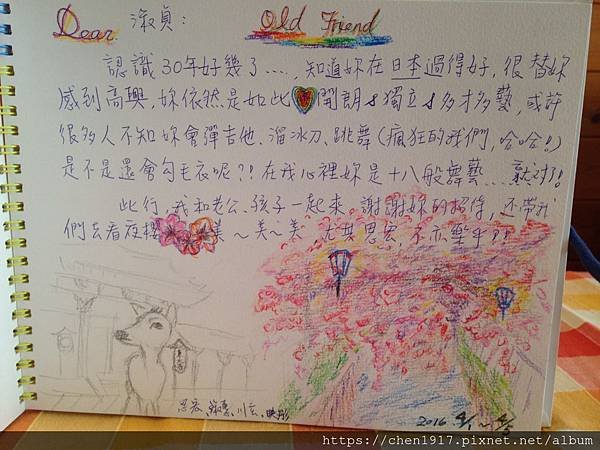 Dear 淑貞： Old Friend
認識30年好幾了....，知道妳在日本過得好，很替妳
感到高興，妳依然是如此開朗&獨立&多才多藝，或許
很多人不知妳會彈吉他、溜冰刀、跳舞(瘋狂的我們，哈哈!)
是不是還會勾毛衣呢?! 在我心裡妳是十八般舞藝....就對了!
此行，我和老公、孩子一起來，謝謝妳的招待，還帶我
們去看夜櫻 美～美～美 尤其思宏，不亦樂乎!!
東大寺
思宏、川云、
2016 4/1 ~ 4/5
https://chen1917.pixnet.net/album